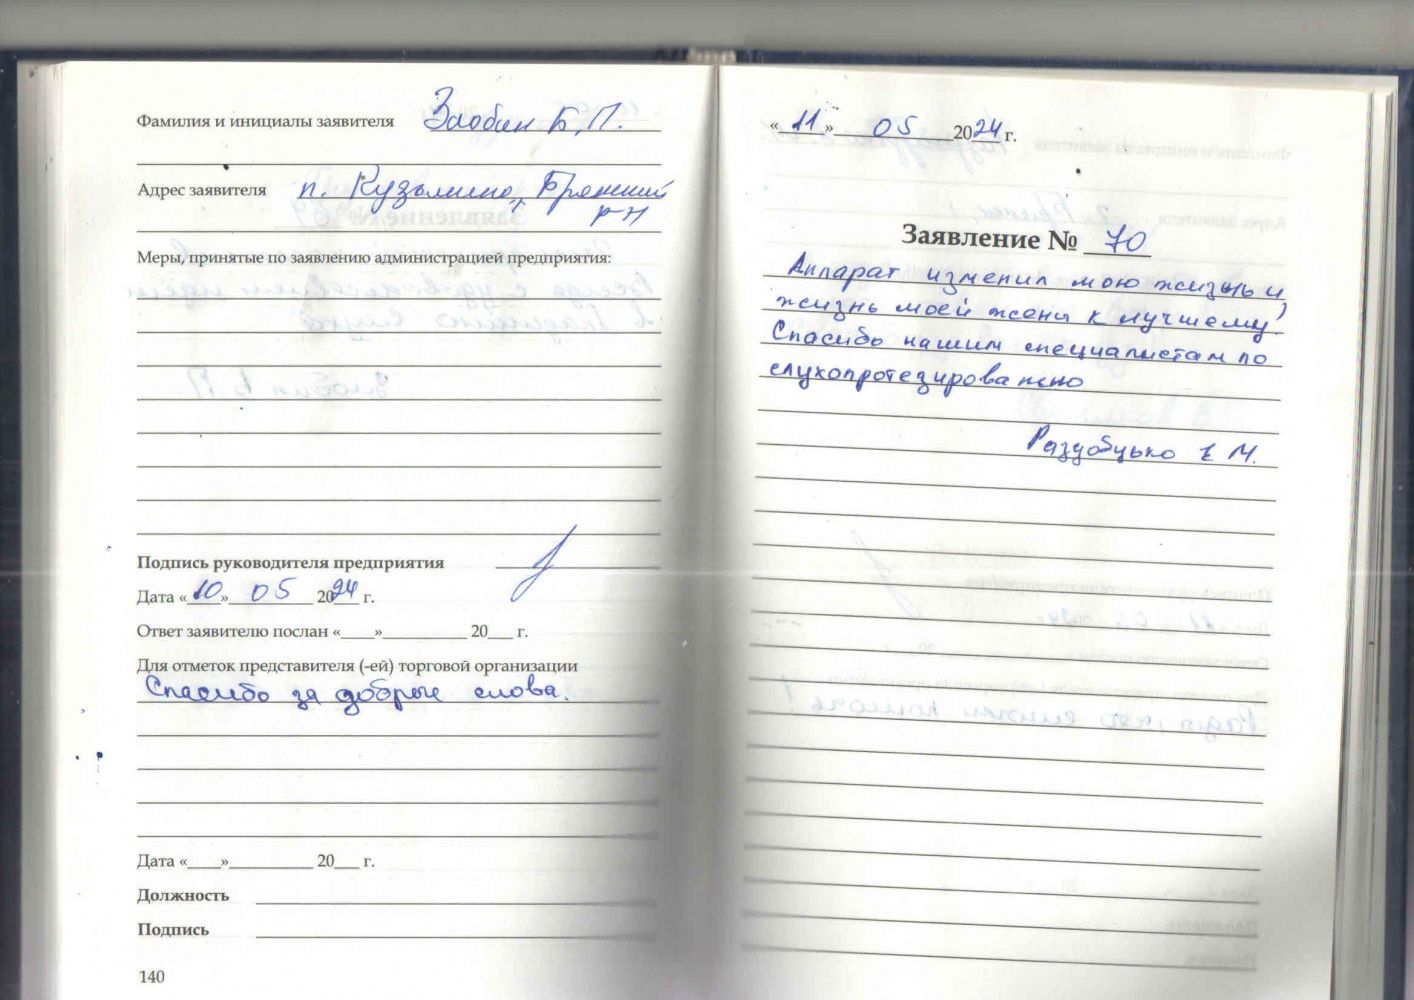 Фамилия и инициалы заявителя Злобин Б.П.
Адрес заявителя п. Кузьмино, Брянский
р-н
Меры, принятые по заявлению администрацией предприятия:
Подпись руководителя предприятия
Дата «10» 05 2024 г.
Ответ заявителю послан «____»__________ 20___ г.
Для отметок представителя (-ей) торговой организации
Спасибо за добрые слова.
Дата «____»__________ 20___ г.
Должность
Подпись
140
«11» 05 2024 г.
Заявление № 70
Аппарат изменил мою жизнь и
жизнь моей жены к лучшему!
Спасибо нашим специалистам по
слухопротезированию
Раздобудько Е М.